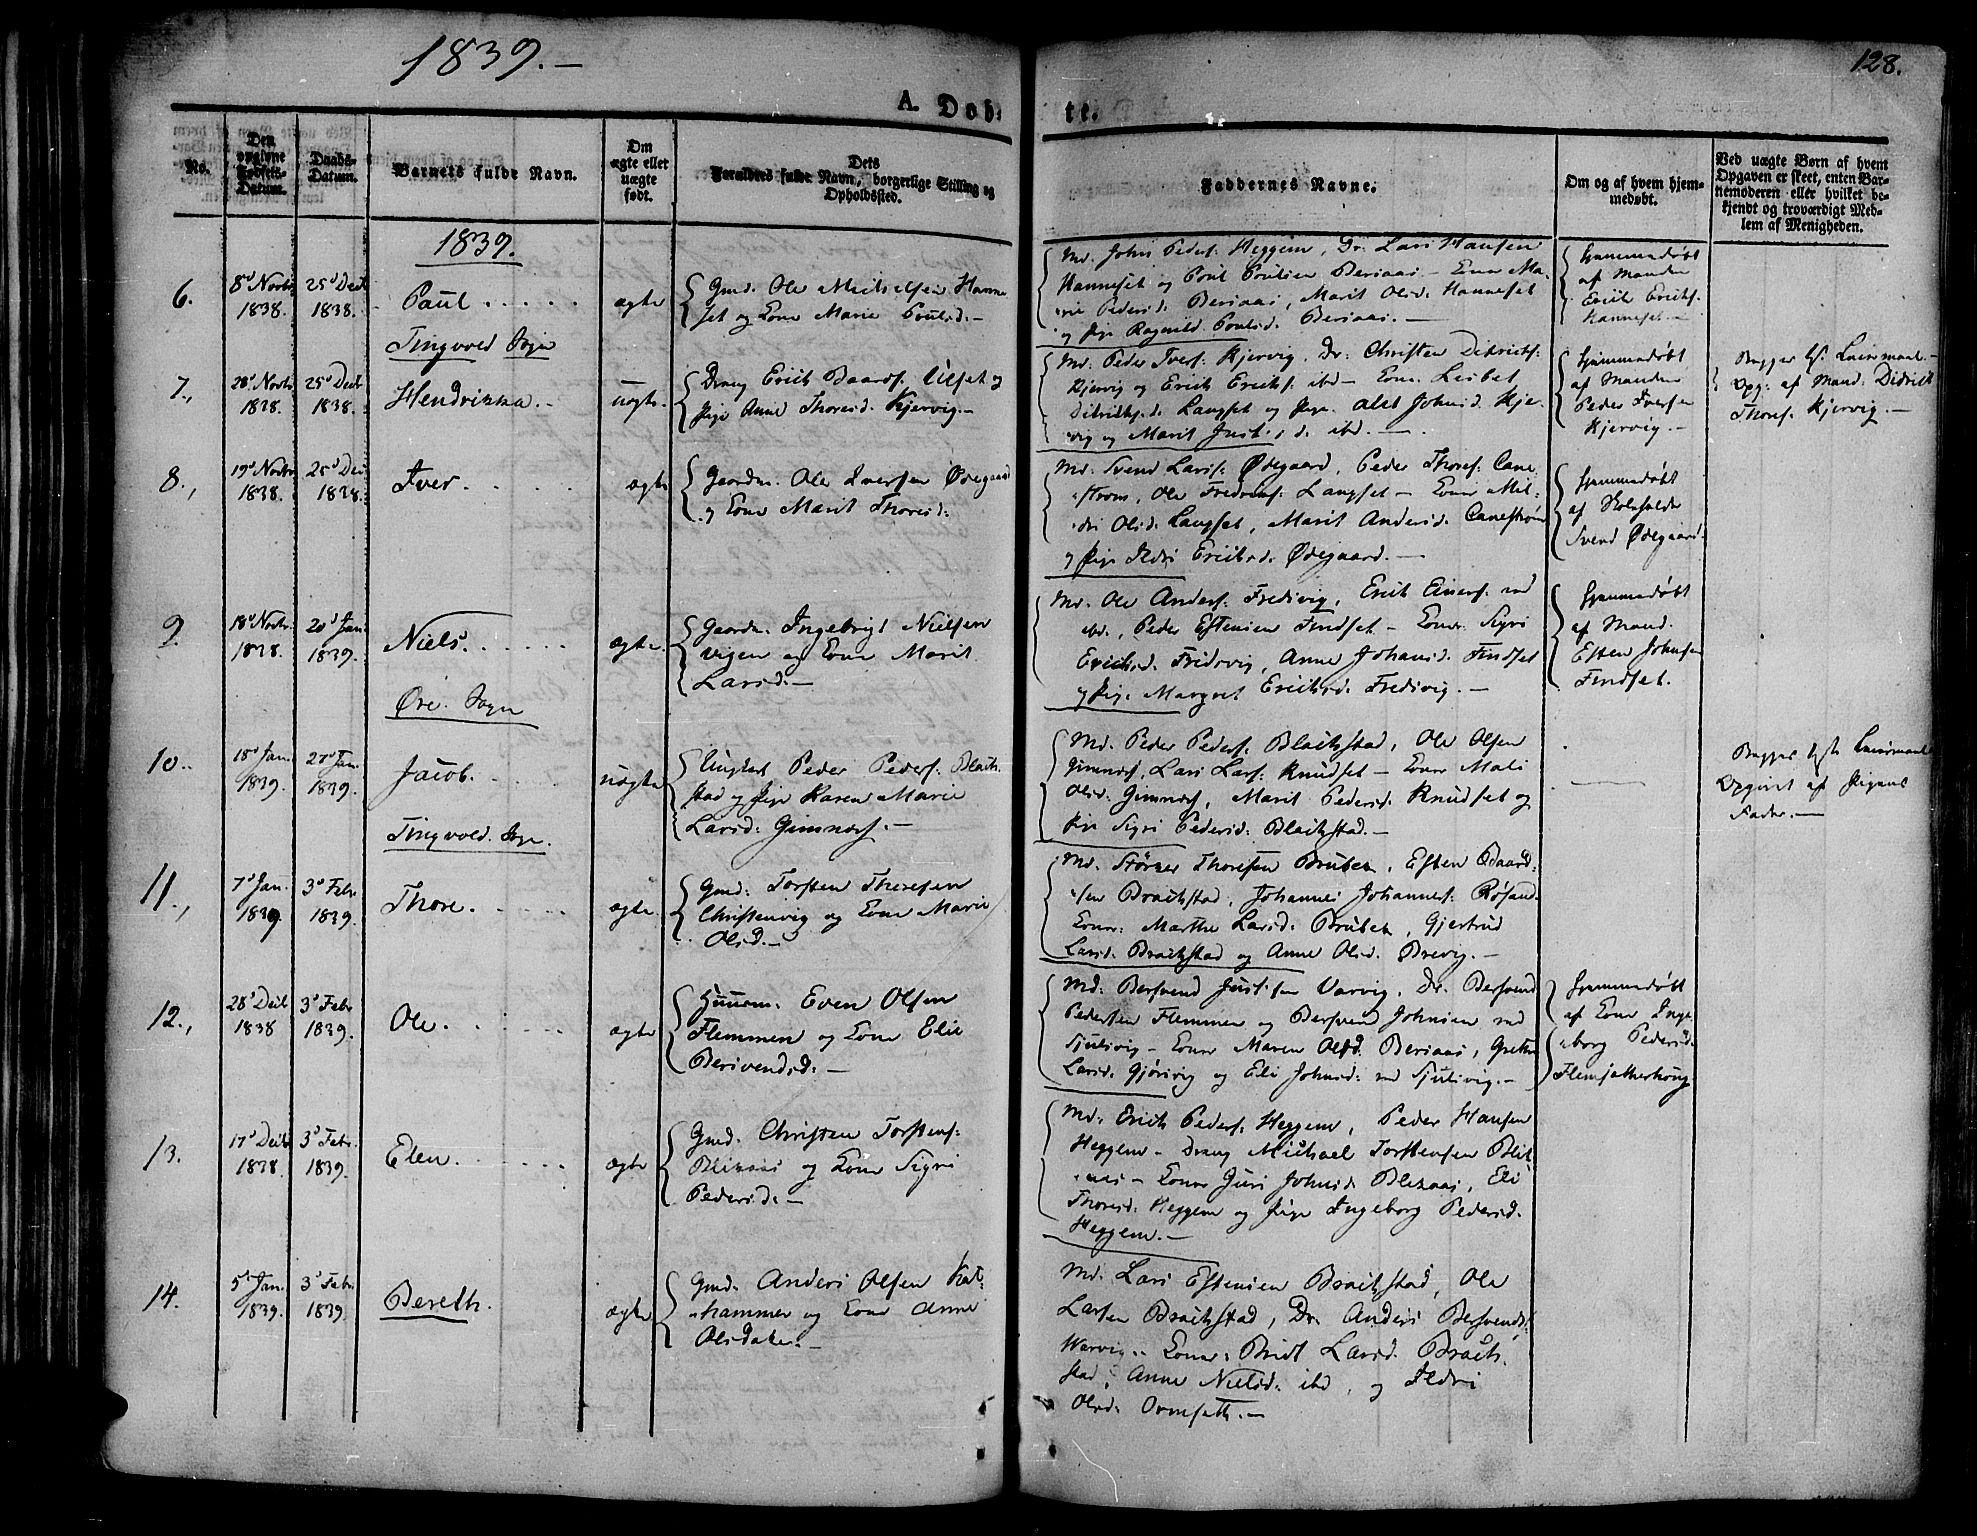 1839.-
128.
A. Døb-
te.
No.
Den opgivne Fødsels-Datum.
Daabs-Datum.
Barnets fulde Navn.
Om ægte eller uægte født.
Dets Forældres fulde Navn, borgerlige Stilling og Opholdssted.
Faddernes Navne.
Om og af hvem hjem-
medøbt.
Ved uægte Børn af hvem
Opgaven er skeet, enten Bar-
nemoderen eller hvilket be-
kjendt og troværdigt Med-
lem af Menigheden.
1839.
6.
8d Novbr 1838.
25d Decbr 1838.
Paul
ægte
Gmd. Ole Michelsen Hanne
set og Kone Marie Poulsd.-
Md. John Peders. Heggem, Dr. Lars Hansen
Hanneset og Poul Poulsen Bersaas - Koner Ma-
rie Pedersd. Bersaas, Marit Olsd. Hanneset
og Pige Ragnild Poulsd. Bersaas.-
Hjemmedøbt
af Manden
Erich Erichs.
Hanneset.-
Tingvold Sogn
7.,
28d Novbr 1838.
25d Decbr 1838.
Hendrikka.-
uægte.
Dreng Erich Baards. Ulset og
Pige Anne Thoresd. Kjervig-
Md. Peder Ivers. Kjervig, Dr: Christen Didrichs:
Kjervig og Erich Erichs. ibd - Koner Lisbet
Didrichsd. Langset og Pige Alet Johnsd. Kjer-
vig og Marit Justsd. ibd.-
Hjemmedøbt
af Manden
Peder Iversen
Kjervig.-
Begges 1ste Leiermaal.-
Opg: af Mand: Didrich
Thores. Kjervig.-
8.,
19d Novbr 1838.
25d Dec 1838.
Iver.
ægte
Gaardm. Ole Iversen Ødegaard
og Kone Marit Thoresd:
Md. Svend Larss. Ødegaard, Peder Thores: Cane
strøm, Ole Fredrichs: Langset - Koner Mil-
dri Olsd. Langset, Marit Andersd. Canestrøm
og Pige Ildri Erichsd. Ødegaard.-
Hjemmedøbt
af Skoleholder
Svend Ødegaard.
9.
18d Novbr. 1838.
20d Jan. 1839.
Niels.
ægte.
Gaardm. Ingebrigt Nielsen
Vigen og Kone Marit
Larsd.-
Md. Ole Anders. Fredsvig, Erich Einers. ved
ibd., Peder Estensen Findset - Koner Sigri
Erichsd. Fredsvig, Anne Johansd. Findset
og Pige Margret Erichsd. Fredsvig.-
Hjemmedøbt
af Mand.
Esten Johnsen
Findset.
Øre. Sogn
10.
18d Jan. 1839.
27d Jan. 1839.
Jacob.
uægte
Ungkarl Peder Peders: Blach-
stad og Pige Karen Marie
Larsd: Gimnæs.-
Md. Peder Peders: Blachstad, Ole Olsen
Gimnæs, Lars Lars: Knudset - Koner Mali
Olsd. Gimnæs, Marit Pedersd. Knudset og
Pige Sigri Pedersd: Blachstad.-
Begges 1ste Leiermaal
Opgivet af Pigens
Fader.-
Tingvold. Sogn.
11.,
7d Jan. 1839
3d Febr. 1839.
Thore.
ægte.
Gmd: Torsten Thoresen
Christenvig og Kone Marie
Olsd.-
Md. Størker Thoresen Bruset, Esten Baard-
sen Brachstad, Johannes Johannes: Røsand.
Koner: Marthe Larsd: Bruset, Gjertrud
Larsd. Brachstad og Anne Olsd. Brevig.-
12.,
28d Decbr 1838
3d Febr. 1839.
Ole.
ægte
Huusm. Even Olsen
Flemmen og Kone Eli
Bersvendsd.-
Md: Bersvend Justsen Varvig, Dr. Bersvend
Pedersen Flemmen og Bersvend Johnsen ved
Sjulsvig - Koner Maren Olsd. Bersaas, Grethe
Larsd. Gjørsvig og Eli Johnsd: ved Sjulsvig.-
Hjemmedøbt
af Kone Inge
borg Pedersd.
Flemsætterhoug
13.
17d Decbr 1838.
3d Febr. 1839.
Elen.
ægte
Gmd. Christen Torstens:
Blikaas og Kone Sigri
Pedersd.-
Md: Erich Peders: Heggem, Peder Hansen
Heggem - Dreng Michael Torstensen Blik
aas - Koner Guri Johnsd. Blikaas, Eli
Thoresd. Heggem og Pige Ingeborg Pedersd.
Heggem.-
14.
5d Jan. 1839.
3d Febr. 1839.
Bereth.
ægte
Gmd. Anders Olsen Kat-
hammer og Kone Anne
Olsdater.-
Md. Lars Estensen Brachstad, Ole
Larsen Brachstad, Dr. Anders Bersvends:
Warvig.. Koner: Bridt Larsd. Brach-
stad, Anne Nielsd: ibd, og Ildri
Olsd. Ormseth.-